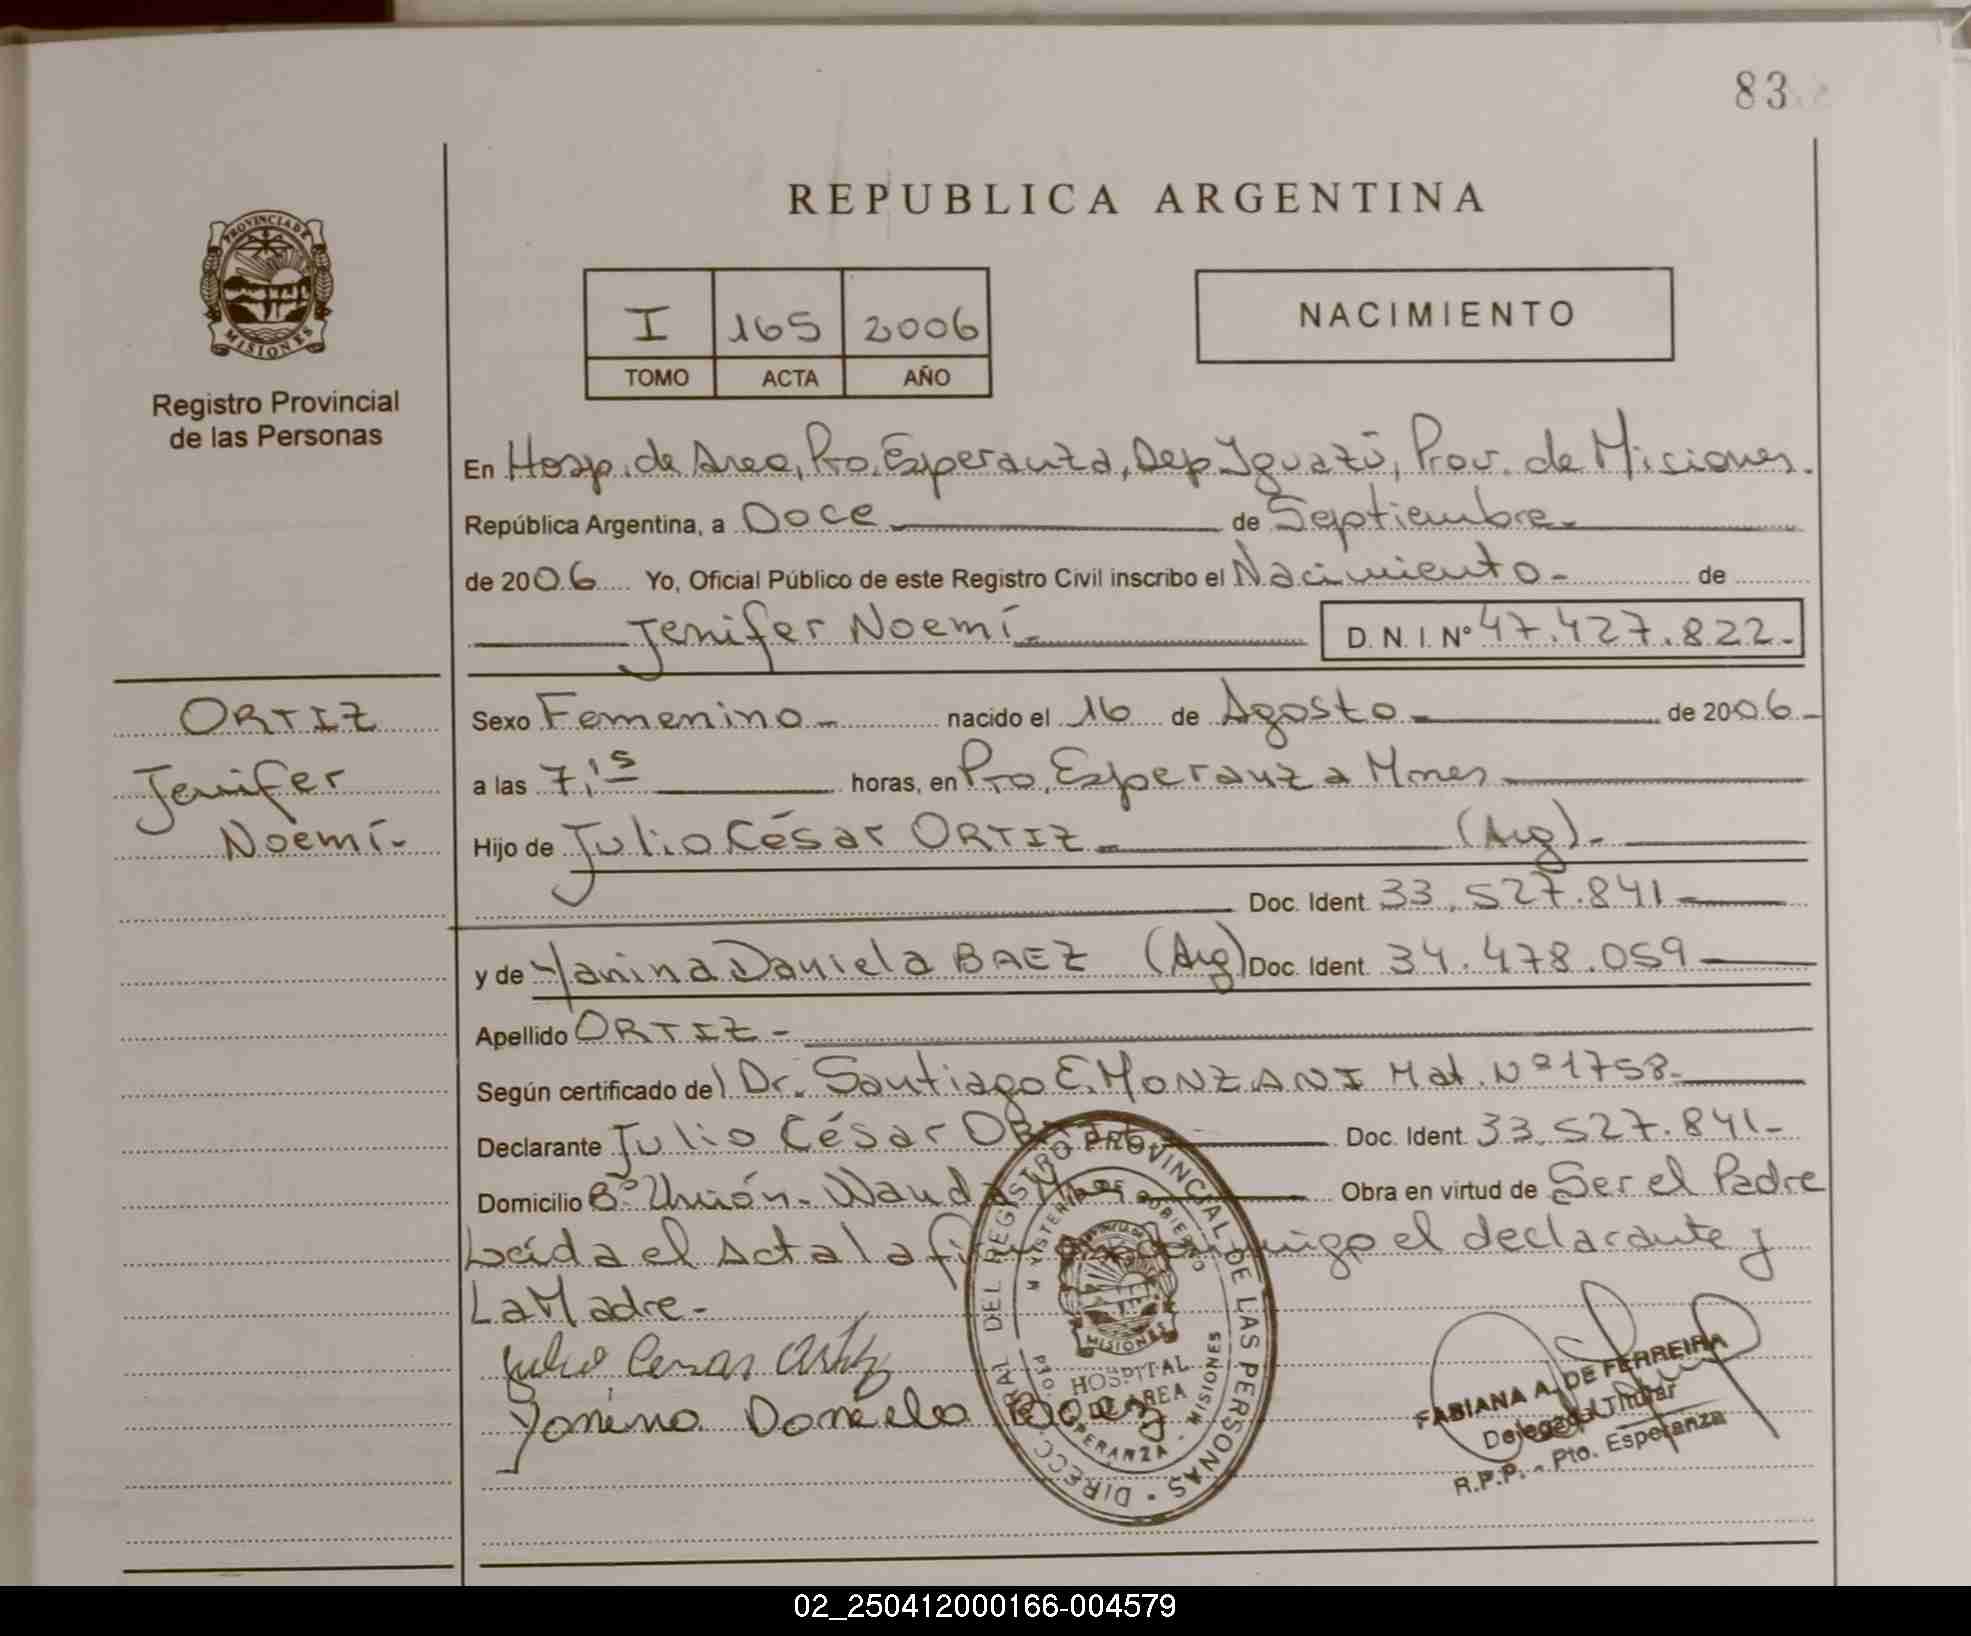 83
REPUBLICA ARGENTINA
PROVINCIA DE
MISIONES
Registro Provincial
de las Personas
I 165 2006
TOMO ACTA AÑO
NACIMIENTO
En Hosp. de Area, Pto. Esperanza, Dep Iguazú, Prov. de Misiones.
República Argentina, a Doce de Septiembre.
de 2006 Yo, Oficial Público de este Registro Civil inscribo el Nacimiento - de
Jenifer Noemí - D. N. I. Nº 47.427.822.-
ORTIZ
Jenifer
Noemí-
Sexo Femenino - nacido el 16 de Agosto - de 2006 -
a las 7,15 horas, en Pto, Esperanza Mnes
Hijo de Julio César ORTIZ - (Arg).-
Doc. Ident. 33.527.841-
y de Yanina Daniela BAEZ (Arg) Doc. Ident. 34.478.059-
Apellido ORTIZ -
Según certificado del Dr. Santiago E. MONZANI Mat. Nº 1758-
Declarante Julio César ORTIZ Doc. Ident. 33.527.841-
Domicilio Bº Unión - Wanda Mnes - Obra en virtud de Ser el Padre
Leída el Acta la conmigo el declarante y
La Madre-
Julio Cesar Ortiz
Yanina Daniela Baez
DIRECC. GRAL. DEL REGISTRO PROVINCIAL DE LAS PERSONAS
MINISTERIO GOBIERNO
MISIONES
HOSPITAL
DE AREA
PTO. ESPERANZA - MISIONES
FABIANA A. DE FERREIRA
Delegada Titular
R.P.P. - Pto. Esperanza
02_250412000166-004579